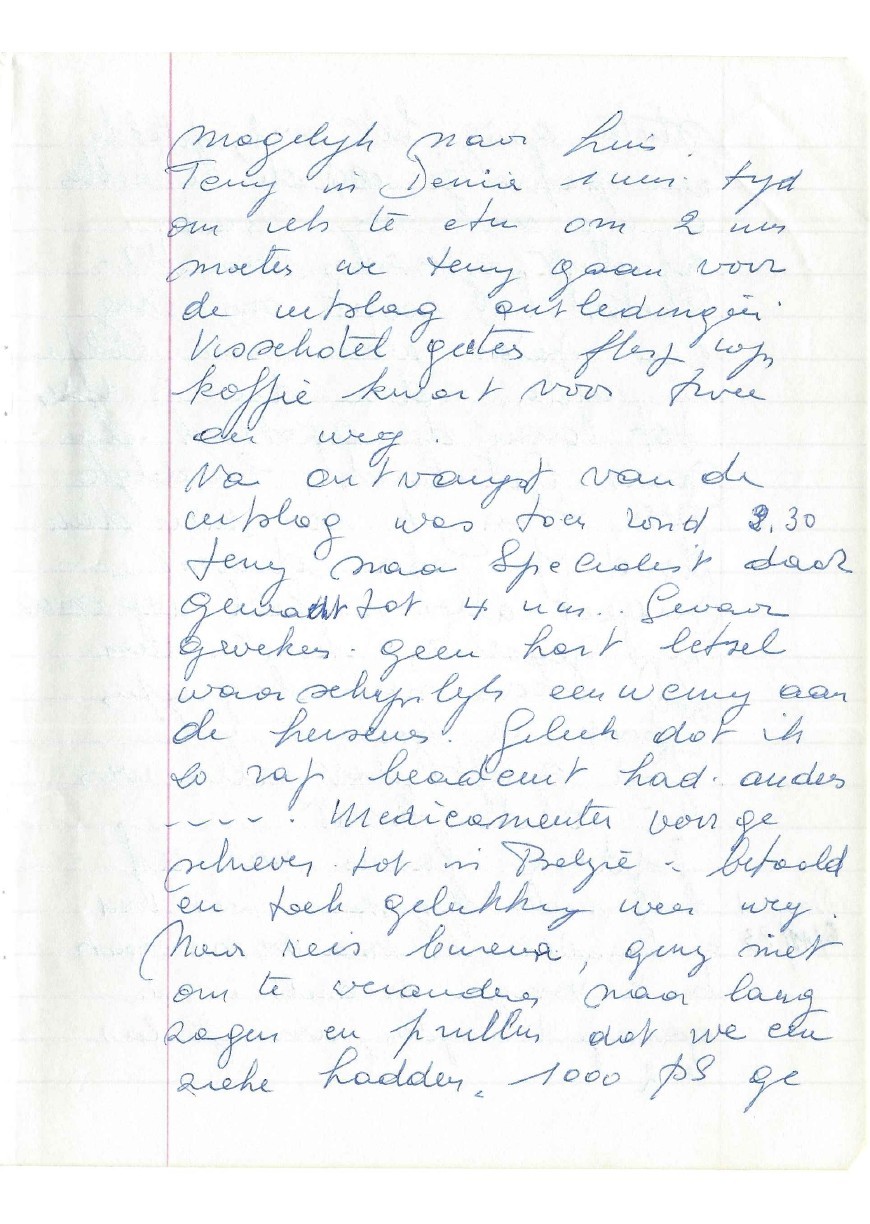 mogelijk naar huis.
Terug in Denia 1 uur. tyd
om iets te eten om 2 uur
moeten we terug gaan voor
de uitslag ontledingen
Visschotel gegeten flesj wijn
koffie kwart voor twee
en weg.
Na ontvangst van de
uitslag was toen rond 3.30
terug naar Specialist daar
gewacht tot 4 uur. Gevaar
geweken. geen hart letsel
waarschijnlijk een weinig aan
de hersens. Geluk dat ik
zo rap beademt had. anders
----. Medicamenten voorge
schreven tot in België - betaald
en toch gelukkig weer weg.
Naar reis bureua, ging niet
om te veranderen maar lang
zagen en prullen dat we een
zieke hadden. 1000 PS ge